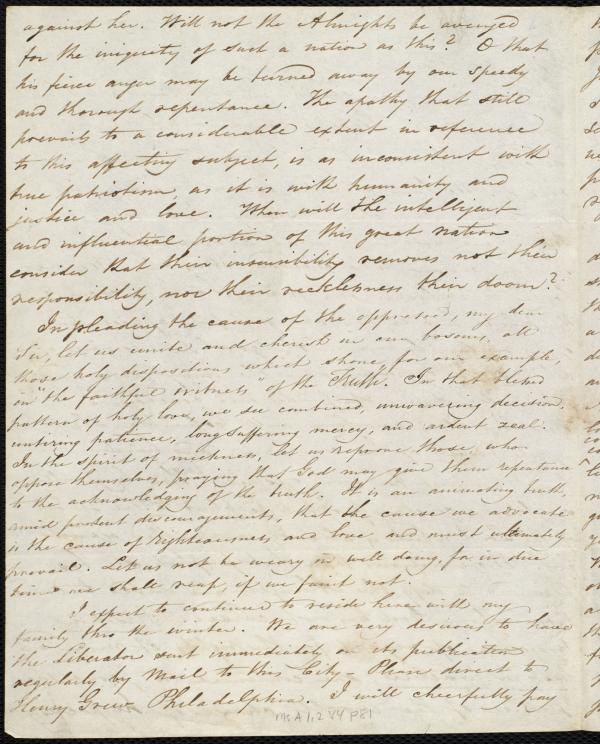 against her. Will not the Almighty be avenged
for the iniquity of such a nation as this? O that
his fierce anger may be turned away by our speedy
and thorough repentance. The apathy that still
prevails to a considerable extent in reference
to this affecting subject, is as inconsistent with
true patriotism as it is with humanity and
justice and love. When will the intelligent
and influential portion of this great nation
consider that their insensibility removes not their
responsibility, nor their recklessness their doom?
In pleading the cause of the oppressed, my dear
Sir, let us unite and cherish in our bosoms, all
those holy dispositions which shone, for our example,
in "the faithful witness" of the Truth. In that blessed
pattern of holy love, we see combined, unwavering decision,
untiring patience, longsuffering mercy, and ardent zeal.
In the spirit of meekness, let us reprove those, who
oppose themselves, praying that God may give them repentance
to the acknowledging of the truth. It is an animating truth,
amid present discouragements, that the cause we advocate
is the cause of Righteousness and love and must ultimately
prevail. Let us not be weary in well doing, for in due
time we shall reap, if we faint not.
I expect to continue to reside here with my
family thro the winter. We are very desirous to have
the Liberator sent immediately on its publication
regularly by Mail to this City - Please direct to
Henry Grew Philadelphia. I will cheerfully pay
Ms A 1.2 V4 P81